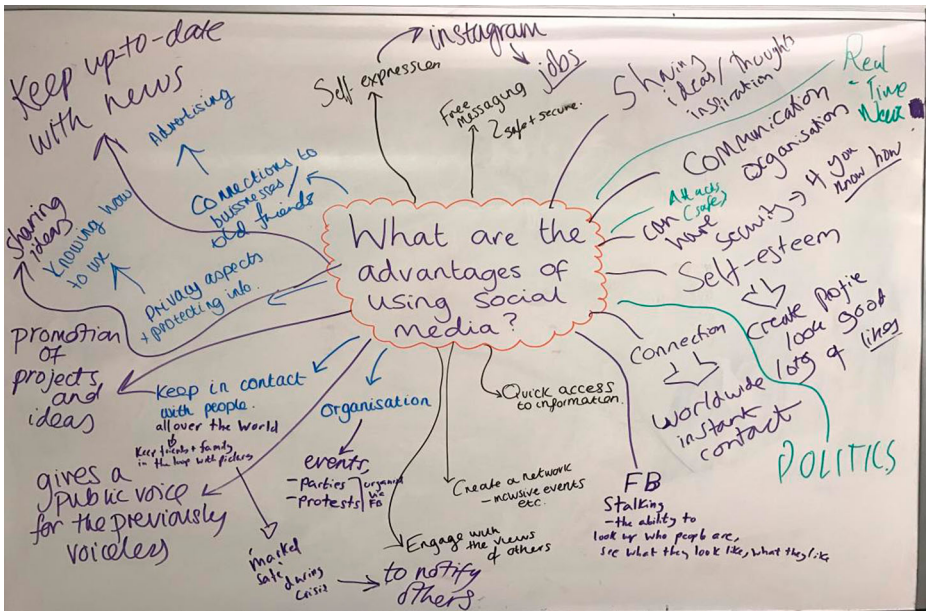 What are the
advantages of
using social
media?
Keep up-to-date
with news
Advertising
Connections to
businesses/
old friends
sharing
ideas
Knowing how
to use
Privacy aspects
+ protecting info.
promotion
of
projects
and
ideas
Keep in contact
with people.
all over the world
Keep friends + family
in the loop with pictures
gives a
public voice
for the previously
voiceless
'marked
safe'
during
crisis
to notify
others
organisation
events,
- parties
- protests
organised
via
FB
Engage with
the views
of others
Create a network
- inclusive events
etc.
Quick access
to information.
FB
Stalking
- the ability to
look up who people are,
see what they look like, what they like
Connection
worldwide
instant
contact
POLITICS
Self-esteem
create profile
look good
lots of
likes
can
have
security → if you
know how
Attacks
(safe)
Communication
organisation
Real
- Time
News
Sharing
ideas/thoughts
inspiration
Free
messaging
safe + secure.
Self expression
instagram
jobs